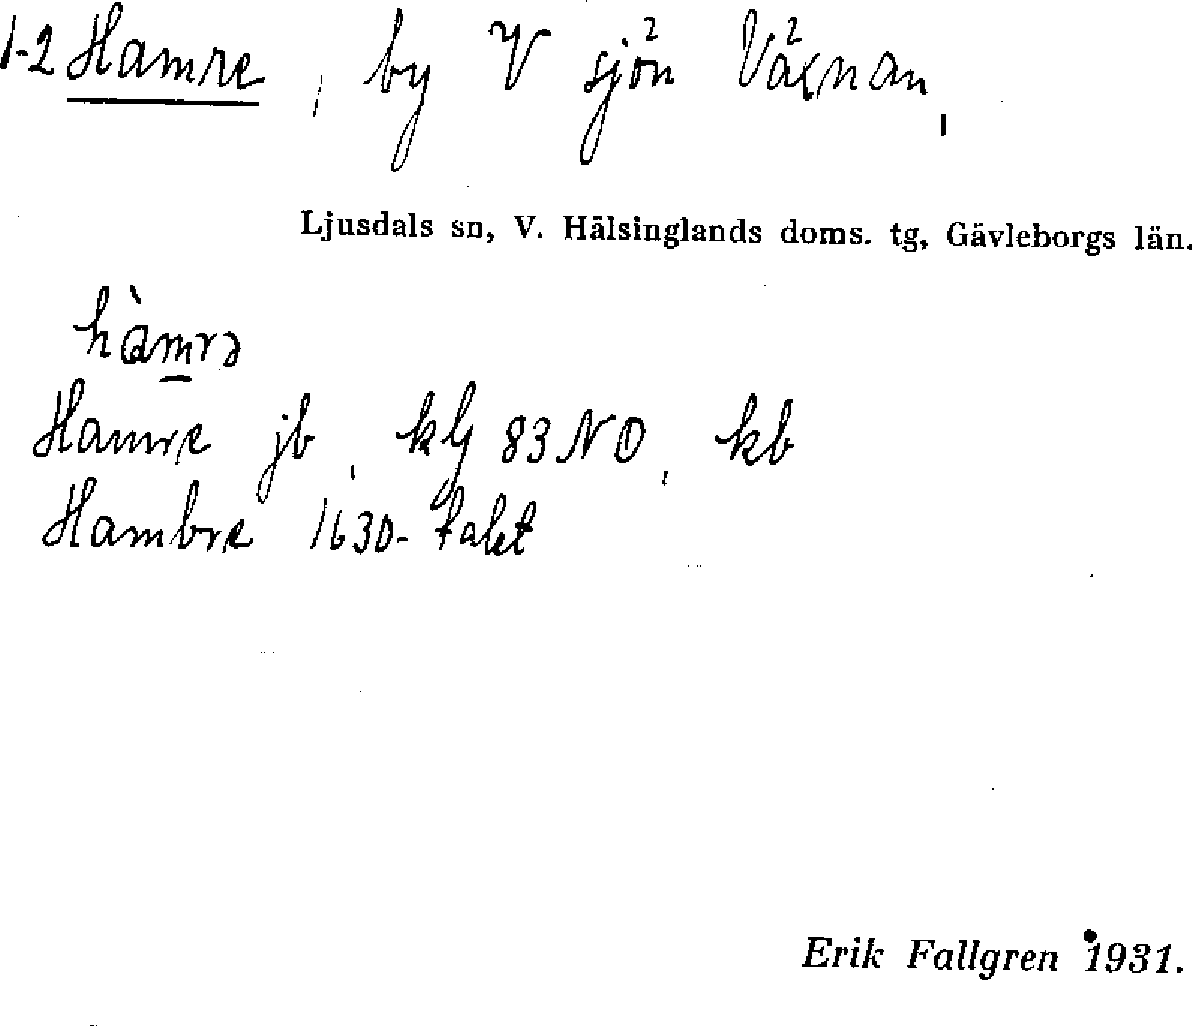 1-2 Hamre, by V sjön Växnan,
Ljusdals sn, V. Hälsinglands doms. tg, Gävleborgs län.
hàm̲rə
Hamre jb, kG 83 NO, kb
Hambre 1630-talet
Erik Fallgren 1931.